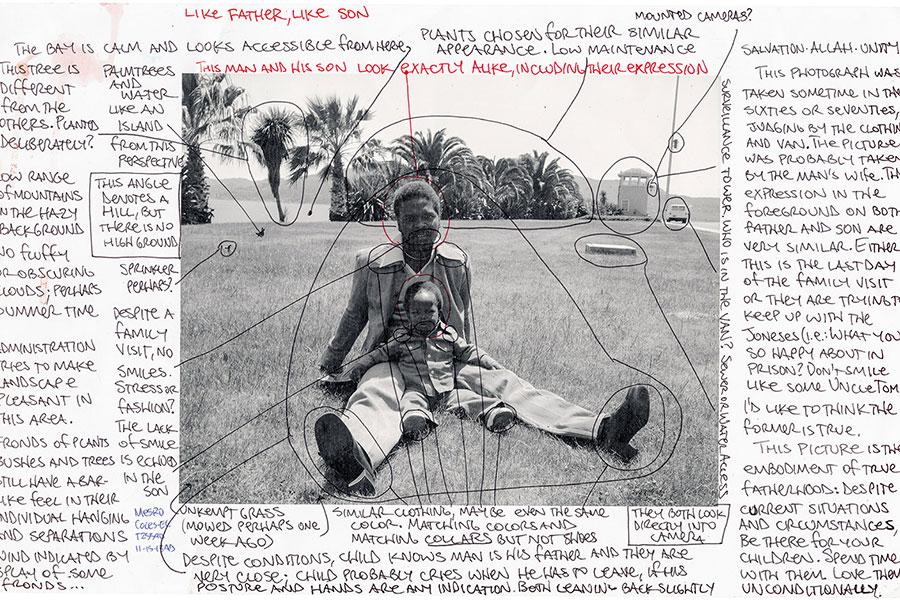 LIKE FATHER, LIKE SON
MOUNTED CAMERAS?
THE BAY IS CALM AND LOOKS ACCESSIBLE FROM HERE
PLANTS CHOSEN FOR THEIR SIMILAR
APPEARANCE. LOW MAINTENANCE
THIS MAN AND HIS SON LOOK EXACTLY ALIKE, INCLUDING THEIR EXPRESSION
THIS TREE IS
DIFFERENT
FROM THE
OTHERS. PLANTED
DELIBERATELY?
LOW RANGE
OF MOUNTAINS
IN THE HAZY
BACKGROUND
NO FLUFFY
OR OBSCURING
CLOUDS: PERHAPS
SUMMER TIME
ADMINISTRATION
TRIES TO MAKE
LANDSCAPE
PLEASANT IN
THIS AREA.
FRONDS OF PLANTS
BUSHES AND TREES
STILL HAVE A BAR-
LIKE FEEL IN THEIR
INDIVIDUAL HANGING
AND SEPARATIONS
WIND INDICATED BY
SPLAY OF SOME
FRONDS...
PALM TREES
AND
WATER
LIKE AN
ISLAND
FROM THIS
PERSPECTIVE
THIS ANGLE
DENOTES A
HILL, BUT
THERE IS NO
HIGH GROUND
SPRINKLER
PERHAPS?
DESPITE A
FAMILY
VISIT, NO
SMILES.
STRESS OR
FASHION?
THE LACK
OF SMILE
IS ECHOED
IN THE
SON
MESRO
COLES-EL
11-15-13AD
UNKEMPT GRASS
(MOWED PERHAPS ONE
WEEK AGO)
SIMILAR CLOTHING, MAYBE EVEN THE SAME
COLOR. MATCHING COLORS AND
MATCHING COLLARS BUT NOT SHOES
THEY BOTH LOOK
DIRECTLY INTO
CAMERA
DESPITE CONDITIONS, CHILD KNOWS MAN IS HIS FATHER AND THEY ARE
VERY CLOSE. CHILD PROBABLY CRIES WHEN HE HAS TO LEAVE, IF HIS
POSTURE AND HANDS ARE ANY INDICATION. BOTH LEANING BACK SLIGHTLY
SURVEILLANCE TOWER. WHO IS IN THE VAN? SEWER OR WATER ACCESS
SALVATION. ALLAH. UNITY
THIS PHOTOGRAPH WAS
TAKEN SOMETIME IN THE
SIXTIES OR SEVENTIES,
JUDGING BY THE CLOTHING
AND VAN. THE PICTURE
WAS PROBABLY TAKEN
BY THE MAN'S WIFE. THE
EXPRESSION IN THE
FOREGROUND ON BOTH
FATHER AND SON ARE
VERY SIMILAR. EITHER
THIS IS THE LAST DAY
OF THE FAMILY VISIT
OR THEY ARE TRYING TO
KEEP UP WITH THE
JONESES (I.E: WHAT YOU
SO HAPPY ABOUT IN
PRISON? DON'T SMILE
LIKE SOME UNCLE TOM
I'D LIKE TO THINK THE
FORMER IS TRUE.
THIS PICTURE IS THE
EMBODIMENT OF TRUE
FATHERHOOD: DESPITE
CURRENT SITUATIONS
AND CIRCUMSTANCES,
BE THERE FOR YOUR
CHILDREN. SPEND TIME
WITH THEM. LOVE THEM
UNCONDITIONALLY.